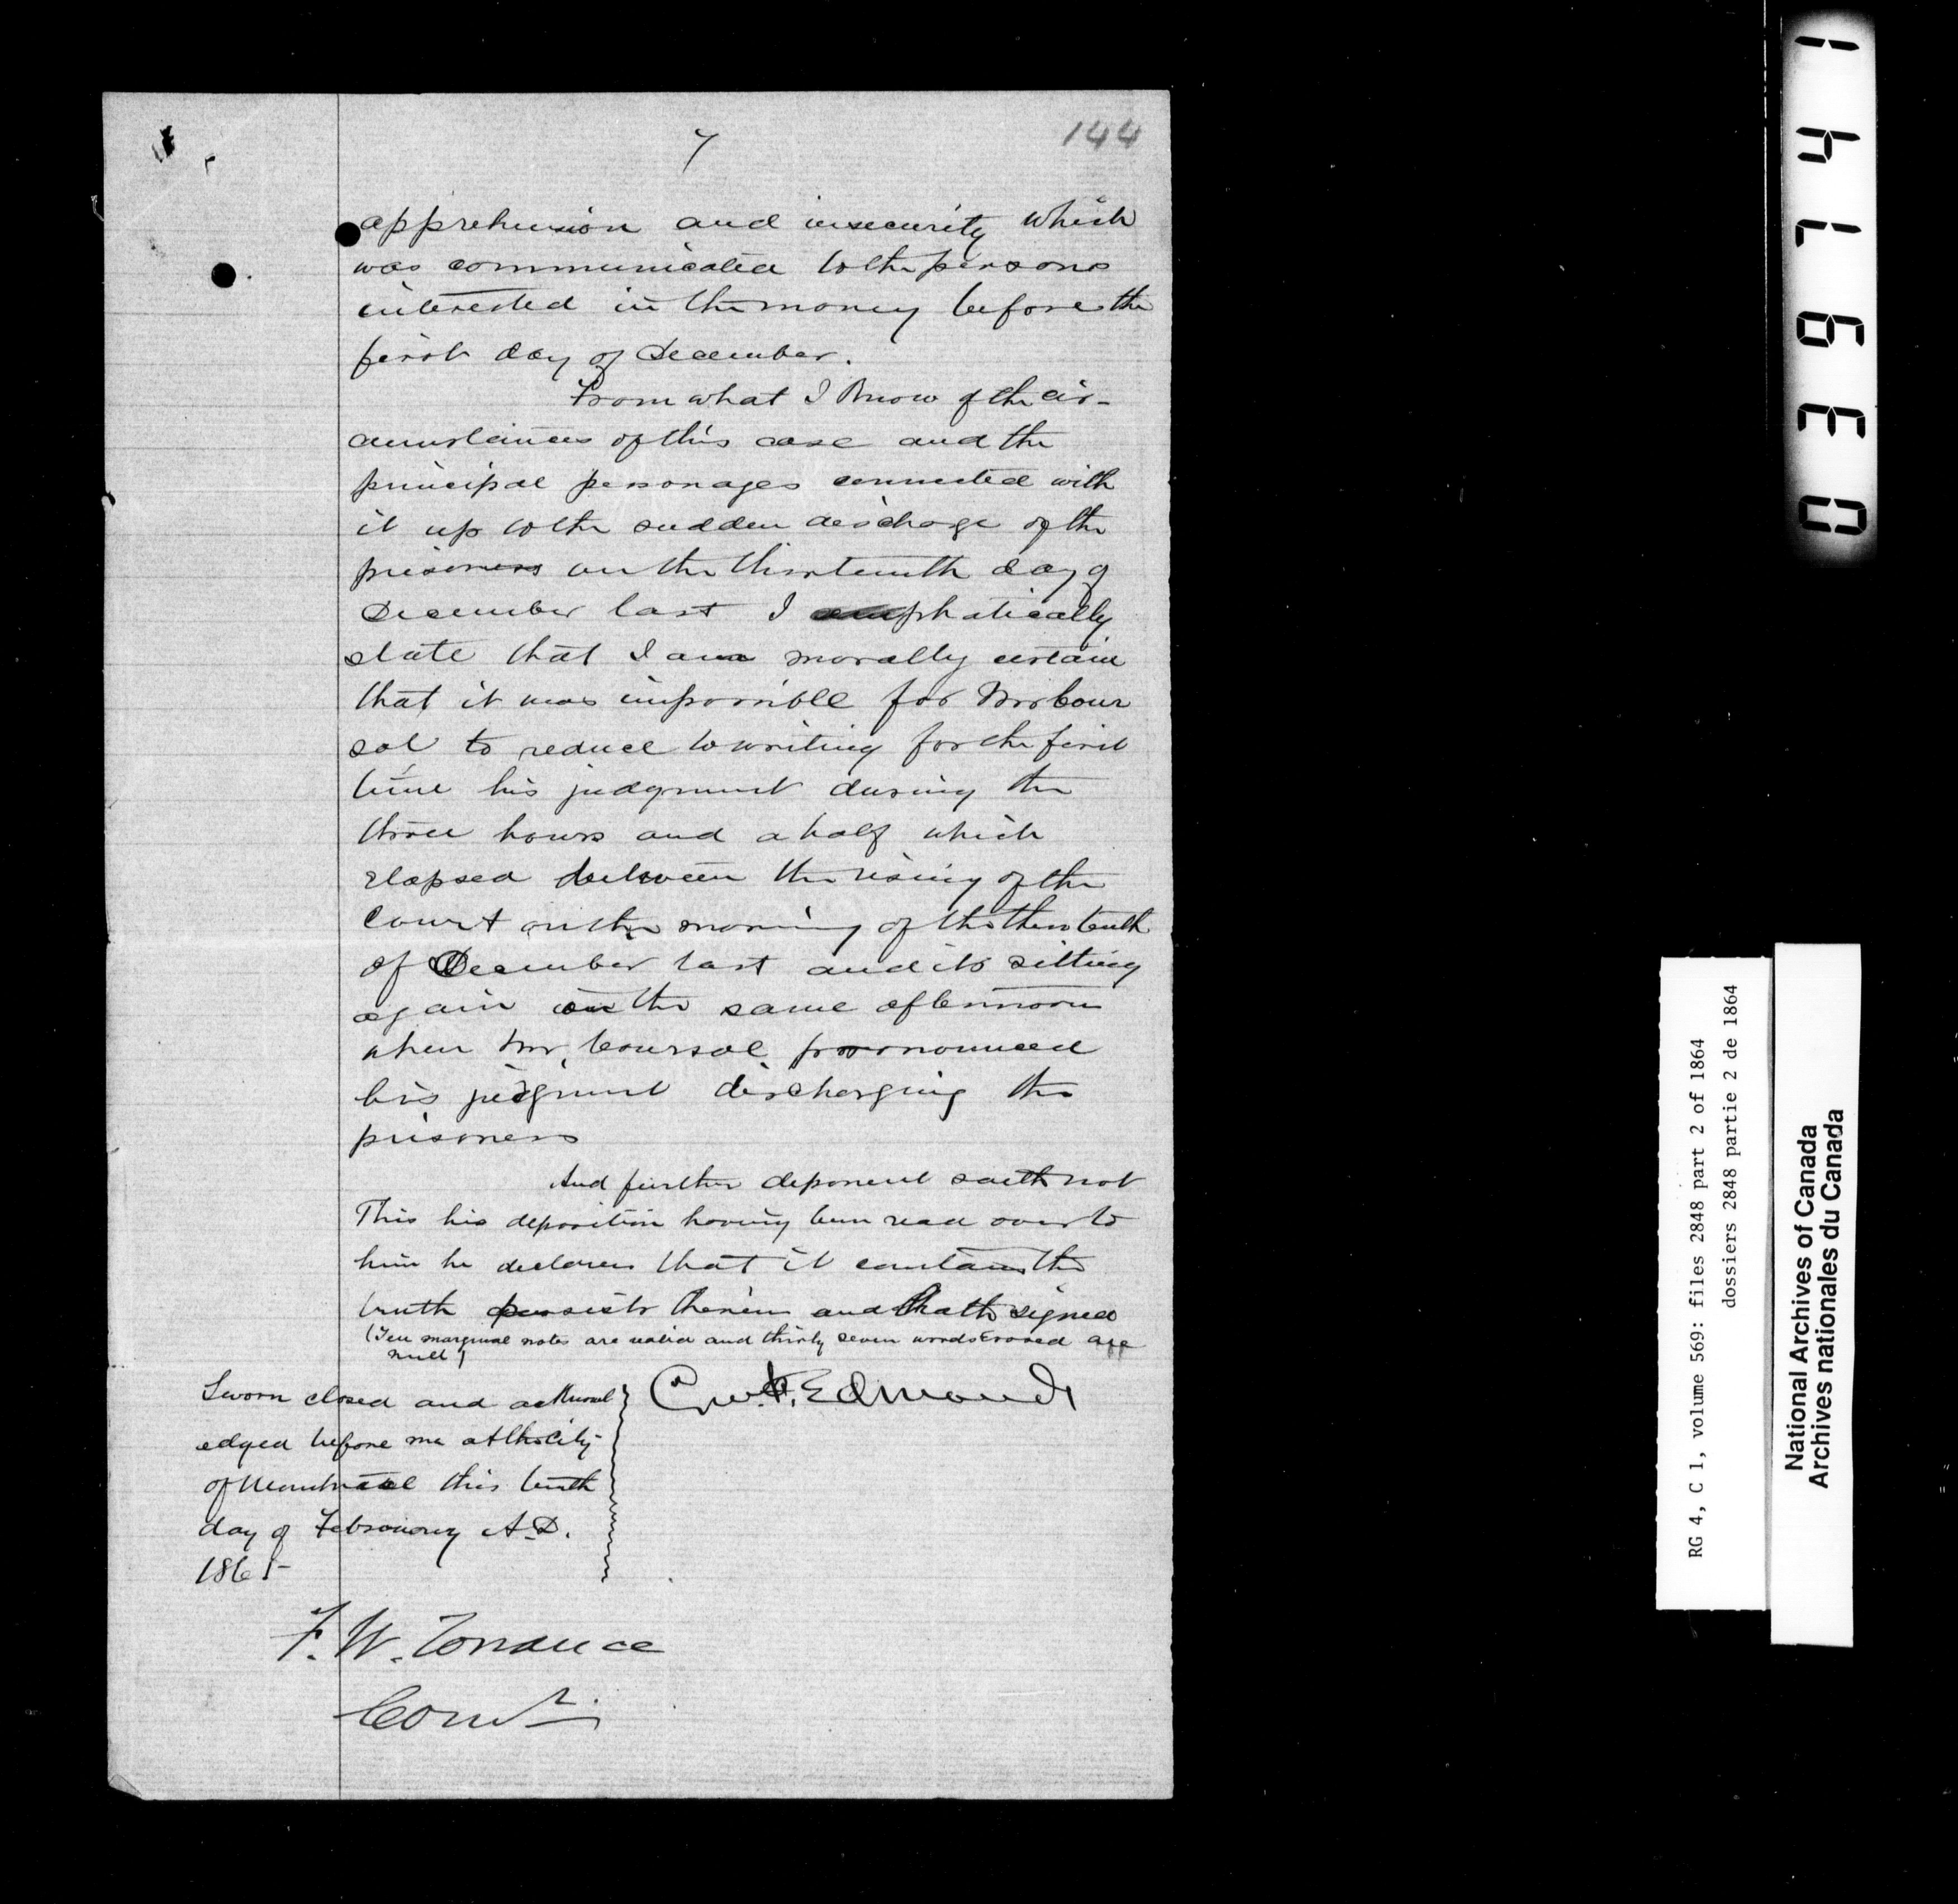 7
144
apprehension and insecurity which
was communicated to the persons
interested in the money before the
first day of December.
From what I know of the cir-
cumstances of this case and the
principal personages connected with
it up to the sudden discharge of the
prisoners on the thirteenth day of
December last I emphatically
state that I am morally certain
that it was impossible for Mr Cour
sol to reduce to writing for the first
time his judgment during the
three hours and a half which
elapsed between the rising of the
Court on the morning of the thirteenth
of December last and its sitting
again on the same afternoon
when Mr. Coursol pronounced
his judgment discharging the
prisoners
And further deponent saith not
This his deposition having been read over to
him he declares that it contains the
truth persists therein and hath signed
(Ten marginal notes are valid and thirty seven words erased are
null)
Sworn closed and acknowl
edged before me at the City
of Montreal this tenth
day of February A.D.
1865
Edmonds
F. W. Torrance
Comr.
1 4 7 6 3 0
RG 4, C 1, volume 569: files 2848 part 2 of 1864
dossiers 2848 partie 2 de 1864
National Archives of Canada
Archives nationales du Canada